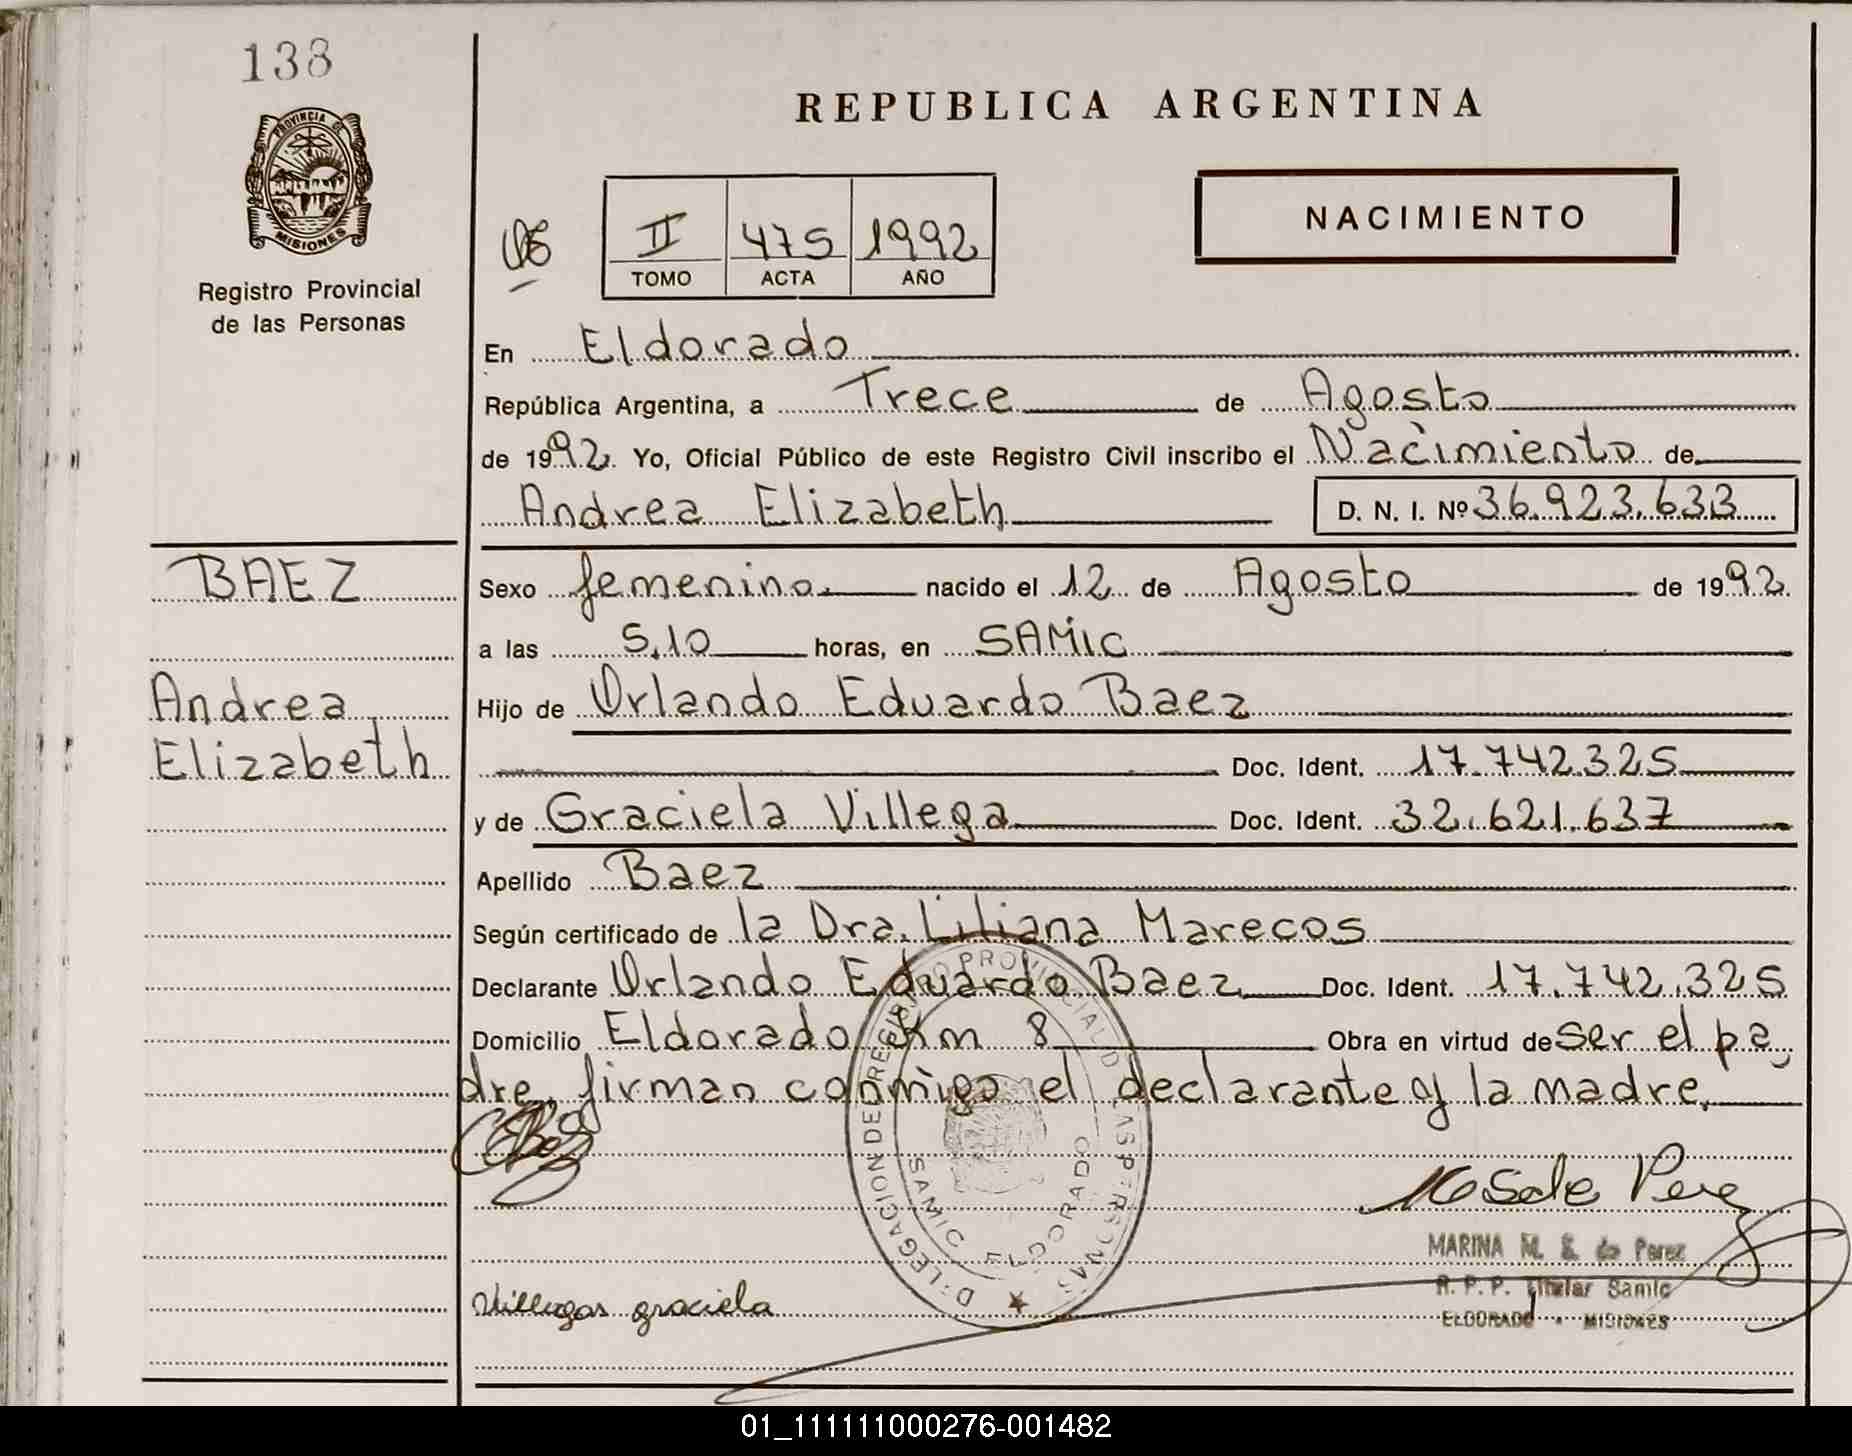 138
PROVINCIA DE
MISIONES
Registro Provincial
de las Personas
REPUBLICA ARGENTINA
NACIMIENTO
II 475 1992
TOMO ACTA AÑO
En Eldorado
República Argentina, a Trece de Agosto
de 1992. Yo, Oficial Público de este Registro Civil inscribo el Nacimiento de
Andrea Elizabeth D. N. I. Nº 36.923.633
BAEZ
Andrea
Elizabeth
Sexo femenino nacido el 12 de Agosto de 1992.
a las 5,10 horas, en SAMIC
Hijo de Orlando Eduardo Baez
Doc. Ident. 17.742.325
y de Graciela Villega Doc. Ident. 32.621.637
Apellido Baez
Según certificado de la Dra. Liliana Marecos
Declarante Orlando Eduardo Baez Doc. Ident. 17.742.325
Domicilio Eldorado Km 8 Obra en virtud de ser el pa
dre, firman conmigo el declarante y la madre.
DELEGACION DEL REGISTRO PROVINCIAL DE LAS PERSONAS
SAMIC ELDORADO
MARINA M. S. de Perez
R. P. P. Titular Samic
ELDORADO - MISIONES
Villegas graciela
01_111111000276-001482